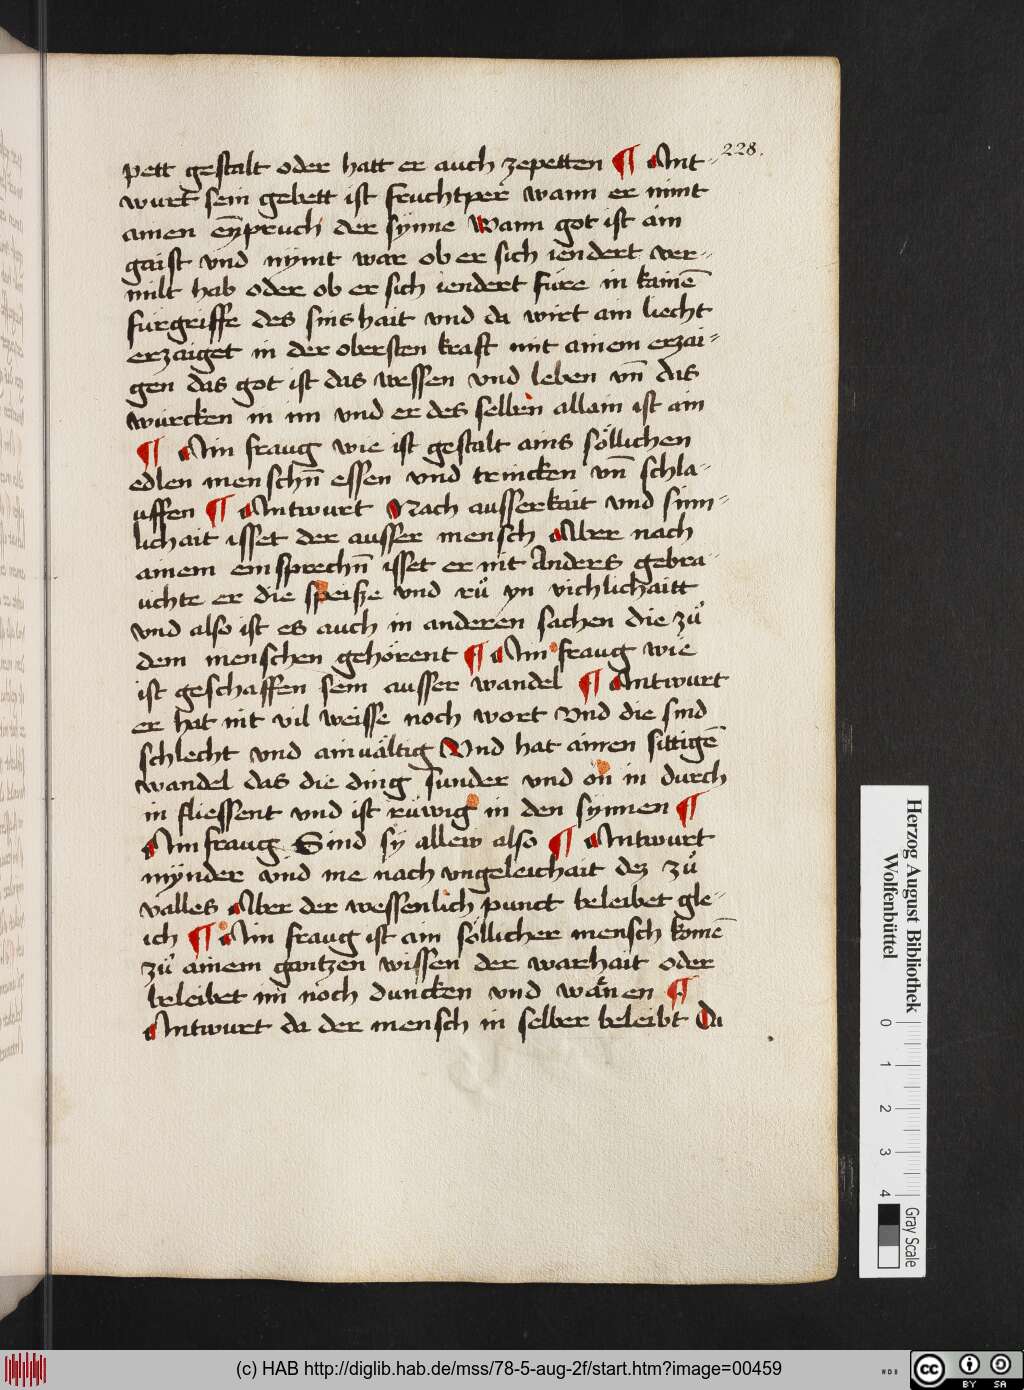 228.
pett gestalt oder hatt er auch zepetten ¶ Ant-
wurt sein gebett ist fruchtper wann er nimt
ainen eÿnpruch der sÿnne Wann got ist ain
gaist vnd nÿmt war ob er sich iendert ver-
milt hab oder ob er sich iendert füre in kainē
fürgriffe des sinshait vnd da wirt ain liecht
erzaiget in der obersten kraft mit ainem erzai-
gen das got ist das wessen vnd leben vn̄ das
würcken in im vnd er des selben allain ist ain
¶ Ain fraug wie ist gestalt ains söllichen
edlen menschn̄ essen vnd trincken vn̄ schla-
uffen ¶ Antwurt Nach ausserkait vnd sinn-
lichait isset der ausser mensch Aber nach
ainem einsprechn̄ isset er nit Anders gebra-
uchte er die speisze vnd rů yn vichlichaitt
vnd also ist es auch in anderen sachen die zů
dem menschen gehörent ¶ Ain fraug wie
ist geschaffen sein ausser wandel ¶ Antwurt
er hat nit vil weisse noch wort Vnd die sind
schlecht vnd ainvältig Vnd hat ainen sittigē
wandel das die ding sunder vnd on in durch
in fliessent vnd ist rüwig in den sÿnnen ¶
Ain fraug Sind sÿ allew also ¶ Antwurt
mÿnder vnd me nach vngeleichait dez zů
valles Aber der wessenlich punct beleibet gle-
ich ¶ Ain fraug ist ain söllicher mensch komē
zů ainem gantzen wissen der warhait oder
beleibet im noch duncken vnd wänen ¶
Antwurt da der mensch in selber beleibt Da
Herzog August Bibliothek
Wolfenbüttel
0 1 2 3 4
Gray Scale
(c) HAB http://diglib.hab.de/mss/78-5-aug-2f/start.htm?image=00459
WDB
cc BY SA